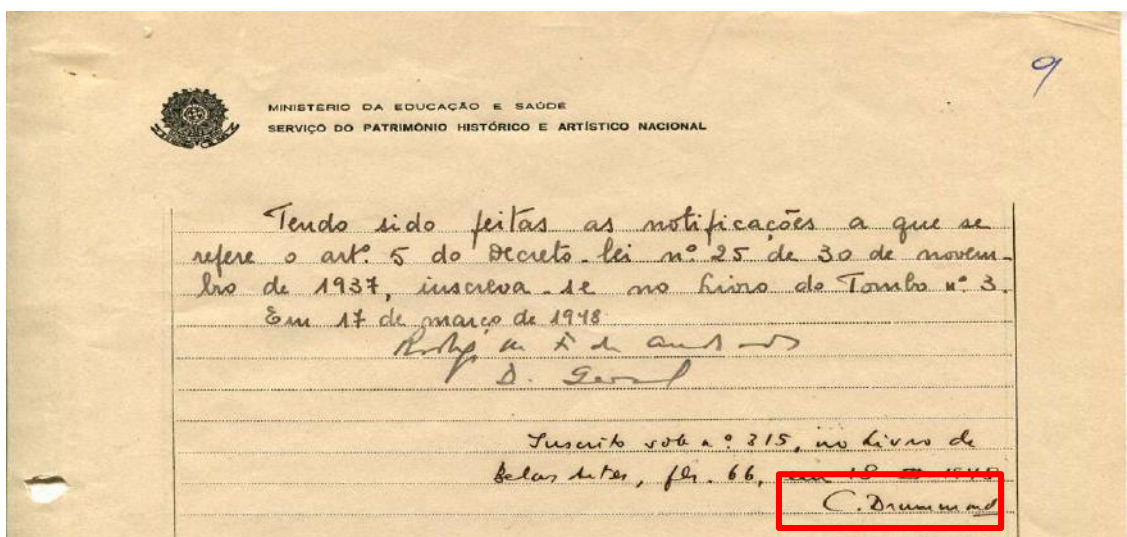 9
MINISTÉRIO DA EDUCAÇÃO E SAÚDE
SERVIÇO DO PATRIMÔNIO HISTÓRICO E ARTÍSTICO NACIONAL
Tendo sido feitas as notificações a que se
refere o artº. 5 do Decreto-lei nº 25 de 30 de novem-
bro de 1937, inscreva-se no Livro do Tombo nº 3.
Em 17 de março de 1948
D. Geral
Inscrito sob nº 315, no Livro de
Belas Artes, fls. 66, em 18 III 1948
C. Drummond